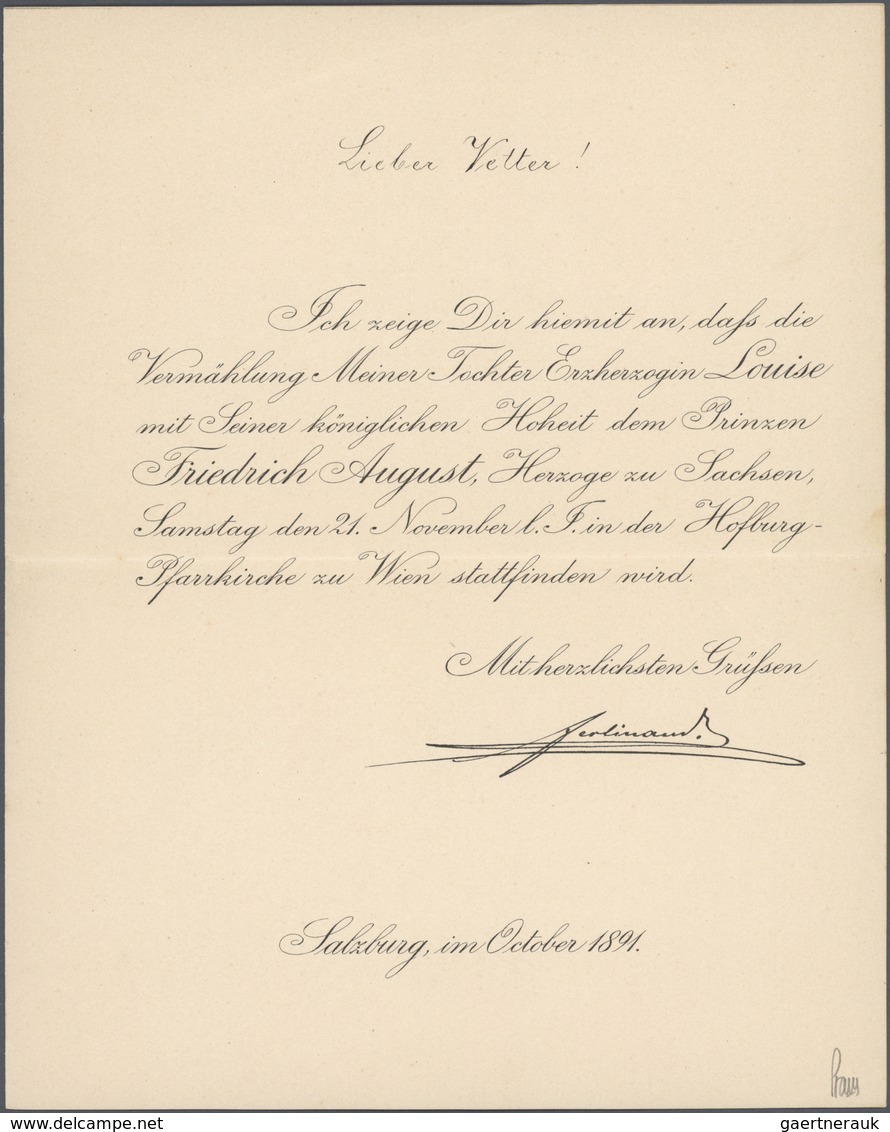 Lieber Vetter !
Ich zeige Dir hiemit an, daſs die
Vermählung Meiner Tochter Erzherzogin Louise
mit Seiner königlichen Hoheit dem Prinzen
Friedrich August, Herzoge zu Sachsen,
Samstag den 21. November l. J. in der Hofburg-
Pfarrkirche zu Wien stattfinden wird.
Mit herzlichsten Grüſsen
Ferdinand.
Salzburg, im October 1891.
gaertnerauk